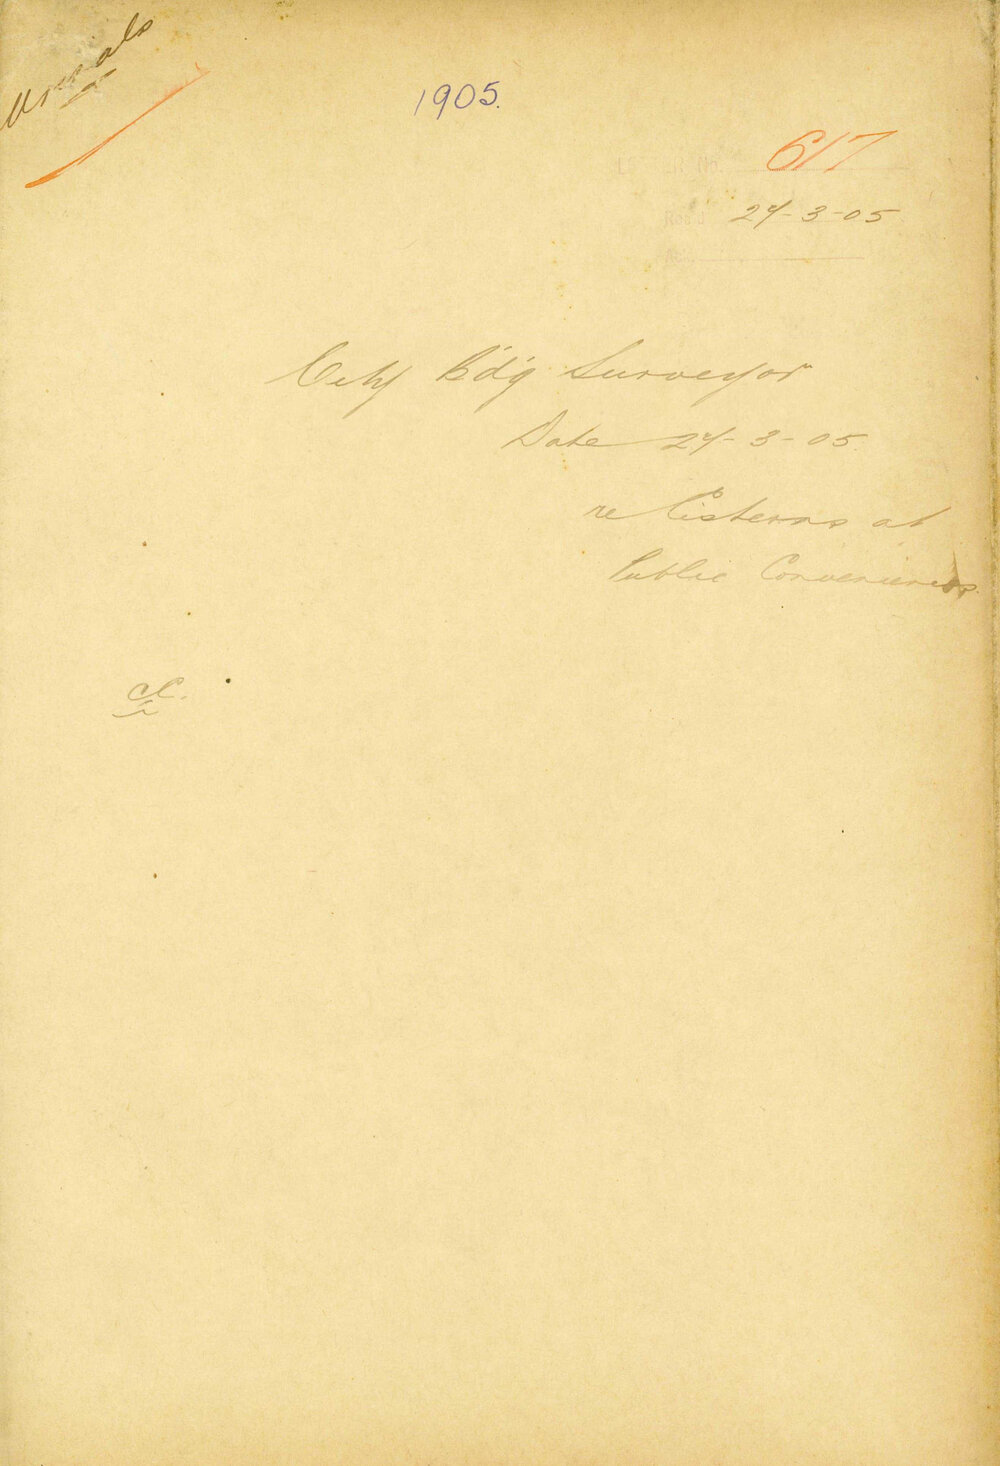 Urinals
1905.
LETTER No. 617
Rec'd 24-3-05
City Bd'g Surveyor
Date 24-3-05.
re Cisterns at
Public Conveniences.